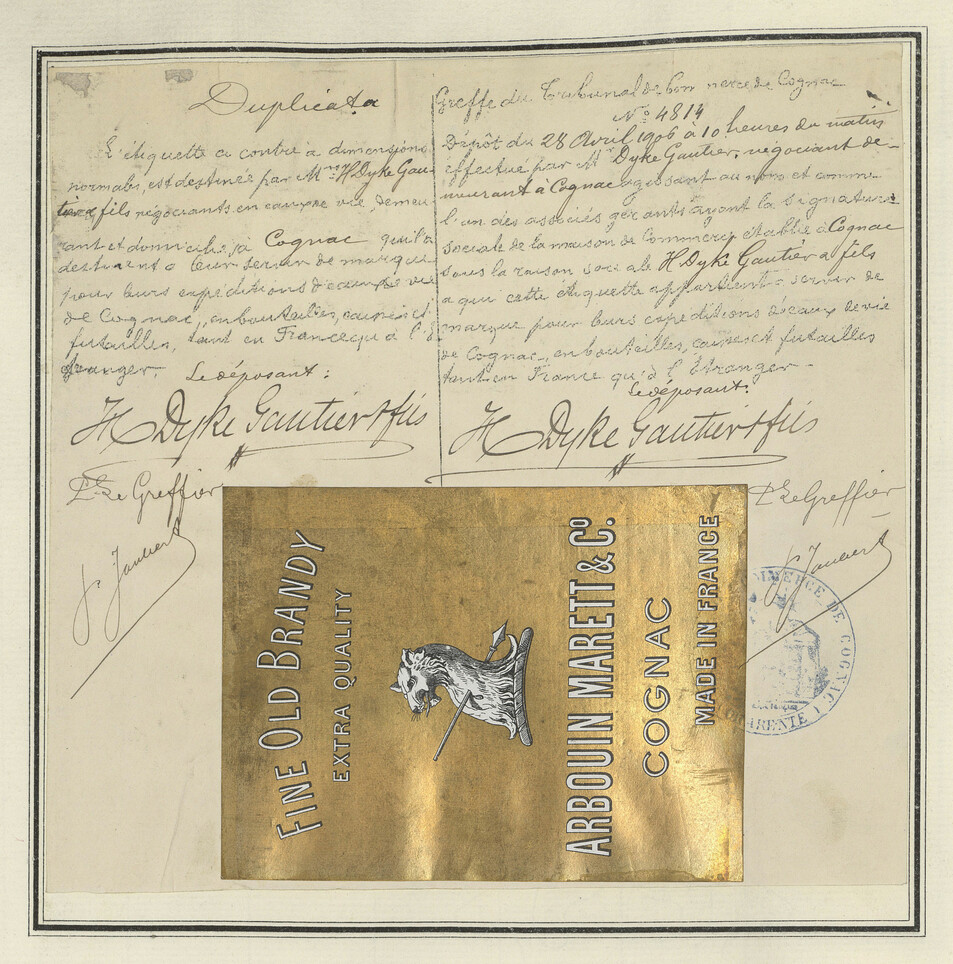 Duplicata
L'étiquette ci contre à dimensions
normales, est destinée par MM. H Dyke Gau-
tier & fils négociants en eaux de vie, demeu
rant et domiciliés à Cognac qu'ils
destinent à leur servir de marque
pour leurs expéditions d'eaux de vie
de Cognac, en bouteilles, caisses et
futailles, tant en France qu'à l'É
tranger.
Le déposant:
H Dyke Gautier & fils
Pr. Le Greffier
Jaubert
Greffe du Tribunal de Commerce de Cognac
No 4814
Dépôt du 28 Avril 1906 à 10 heures du matin
effectué par M Dyke Gautier, négociant de-
meurant à Cognac agissant au nom et comme
l'un des associés gérants ayant la signature
sociale de la maison de Commerce établie à Cognac
sous la raison sociale H Dyke Gautier & fils
à qui cette étiquette appartient à servir de
marque pour leurs expéditions d'eaux de vie
de Cognac, en bouteilles, caisses et futailles
tant en France qu'à l'Étranger.
Le déposant:
H Dyke Gautier & fils
Pr. Le Greffier
Jaubert
FINE OLD BRANDY
EXTRA QUALITY
ARBOUIN MARETT & Co.
COGNAC
MADE IN FRANCE
COMMERCE DE COGNAC
CHARENTE